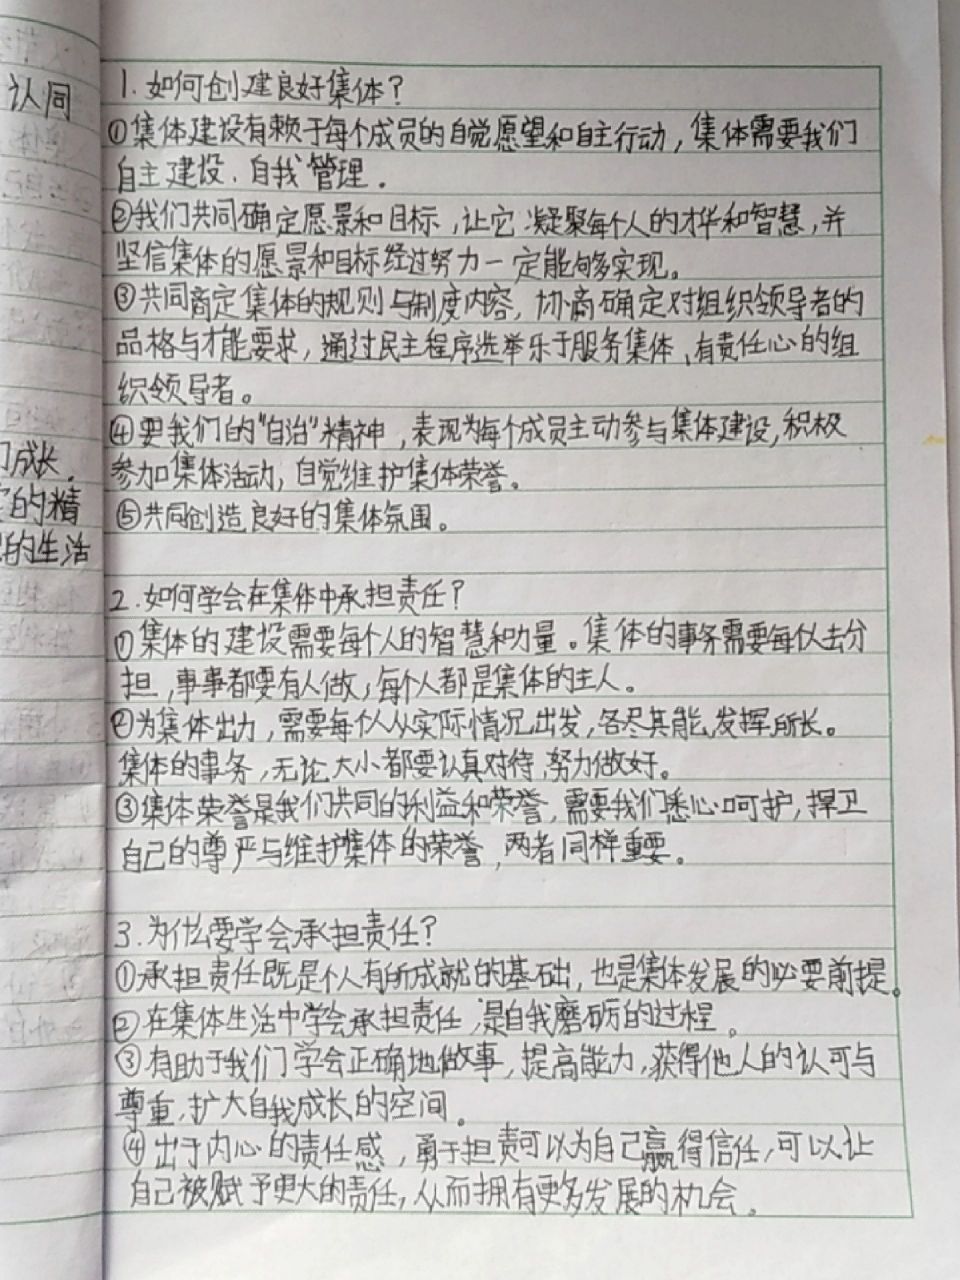 认同
成长.
的精
的生活
1.如何创建良好集体?
①集体建设有赖于每个成员的自觉愿望和自主行动,集体需要我们
自主建设、自我管理.
②我们共同确定愿景和目标,让它凝聚每个人的才华和智慧,并
坚信集体的愿景和目标经过努力一定能够实现。
③共同商定集体的规则与制度内容,协商确定对组织领导者的
品格与才能要求,通过民主程序选举乐于服务集体、有责任心的组
织领导者。
④要我们的"自治"精神,表现为每个成员主动参与集体建设,积极
参加集体活动,自觉维护集体荣誉。
⑤共同创造良好的集体氛围。
2.如何学会在集体中承担责任?
①集体的建设需要每个人的智慧和力量。集体的事务需要每个人去分
担,事事都要有人做,每个人都是集体的主人。
②为集体出力,需要每个人从实际情况出发,各尽其能,发挥所长。
集体的事务,无论大小都要认真对待,努力做好。
③集体荣誉是我们共同的利益和荣誉,需要我们悉心呵护,捍卫
自己的尊严与维护集体的荣誉,两者同样重要。
3.为什么要学会承担责任?
①承担责任既是个人有所成就的基础,也是集体发展的必要前提。
②在集体生活中学会承担责任,是自我磨砺的过程。
③有助于我们学会正确地做事,提高能力,获得他人的认可与
尊重,扩大自我成长的空间。
④出于内心的责任感,勇于担责可以为自己赢得信任,可以让
自己被赋予更大的责任,从而拥有更多发展的机会。